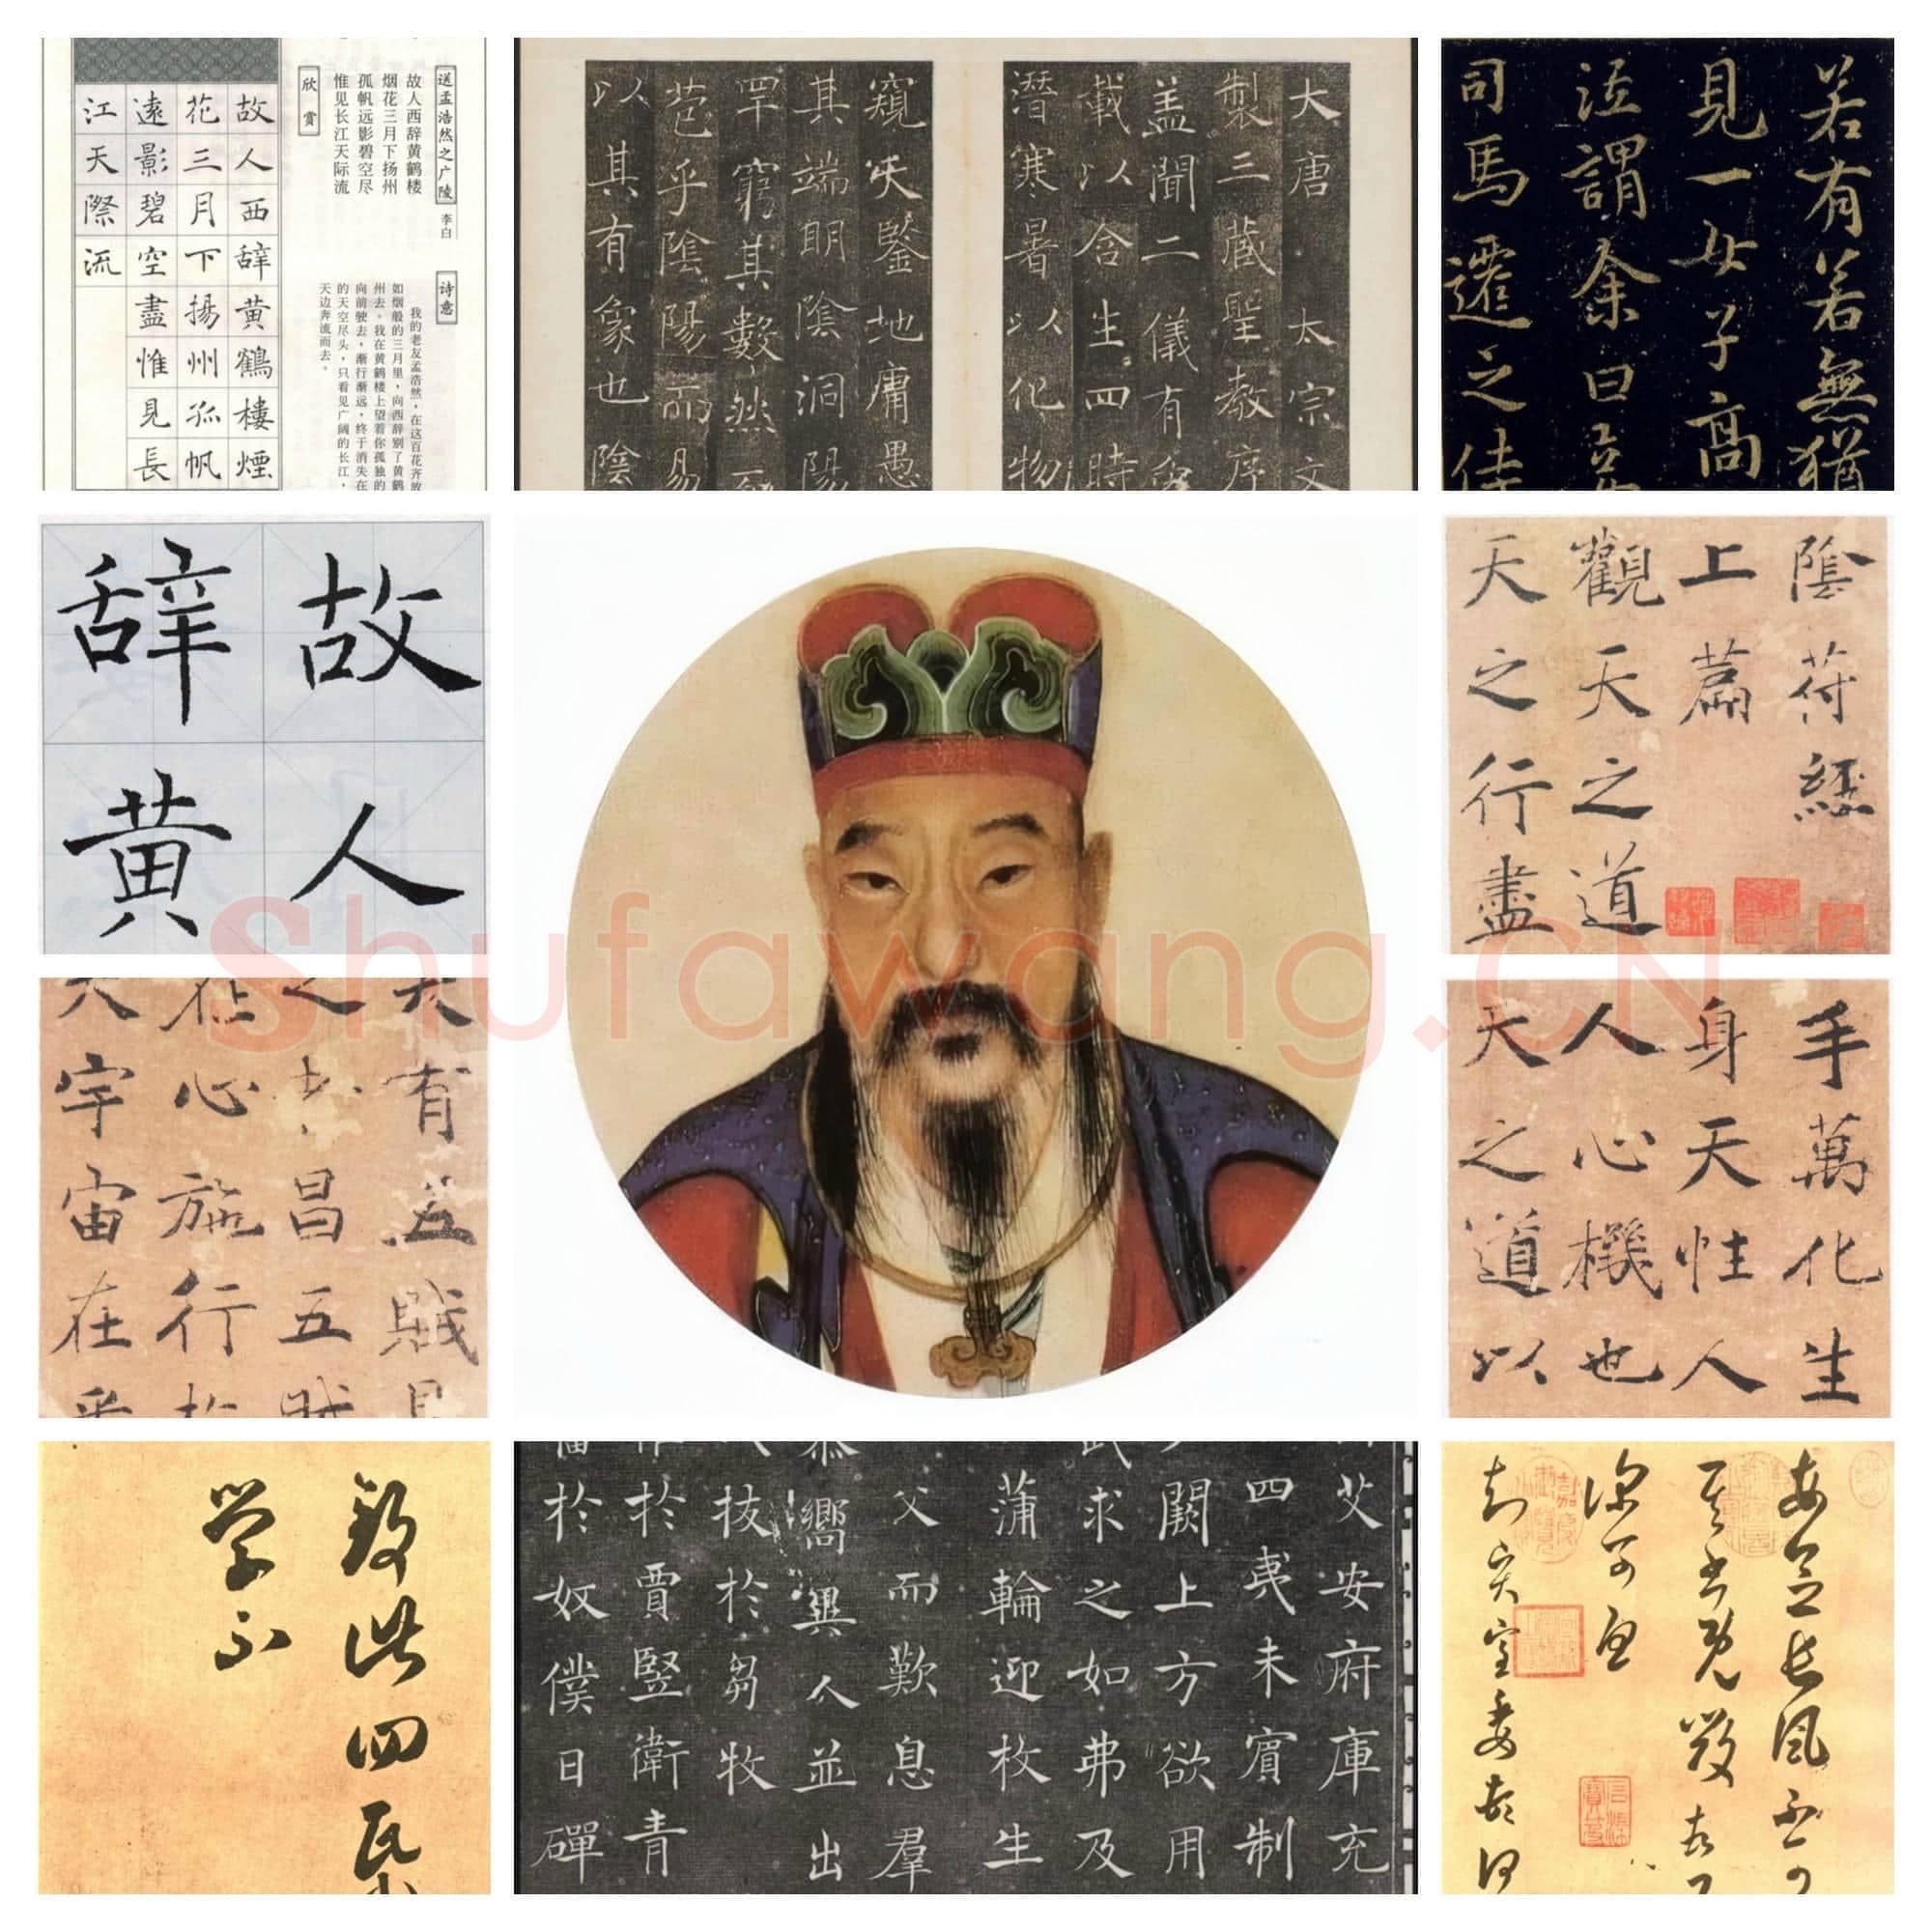 送孟浩然之广陵 李白
故人西辞黄鹤楼
烟花三月下扬州
孤帆远影碧空尽
惟见长江天际流
欣赏
诗意
我的老友孟浩然，在这百花齐放
如烟般的三月里，向西辞别了黄鹤
州去。我在黄鹤楼上望着你孤独的
向前驶去，渐行渐远，终于消失在
的天空尽头，只看见广阔的长江，
天边奔流而去。
故人西辞黄鶴樓煙
花三月下揚州孤帆
遠影碧空盡惟見長
江天際流
大唐太宗文
製三藏聖教序
盖聞二儀有
載以含生四時
潜寒暑以化物
窺天鑒地庸愚
其端明陰洞陽
罕窮其數然
苞乎陰陽而易
以其有象也陰
若有若無猶
見一女子高
泣謂余曰
司馬遷之佳
故人
辞黄
陰符經
上篇
觀天之道
天之行盡
天有五賊
之昌五賊
在心施行
宇宙在乎
手萬化生
身天性人
人心機也
天之道以
致此四民
学
艾安府庫充
四夷未賓制
闕上方欲用
武求之如弗及
蒲輪迎枚生
父而歎息羣
慕嚮異人並出
拔於芻牧
於賈豎衛青
於奴僕日磾
Shufawang.CN